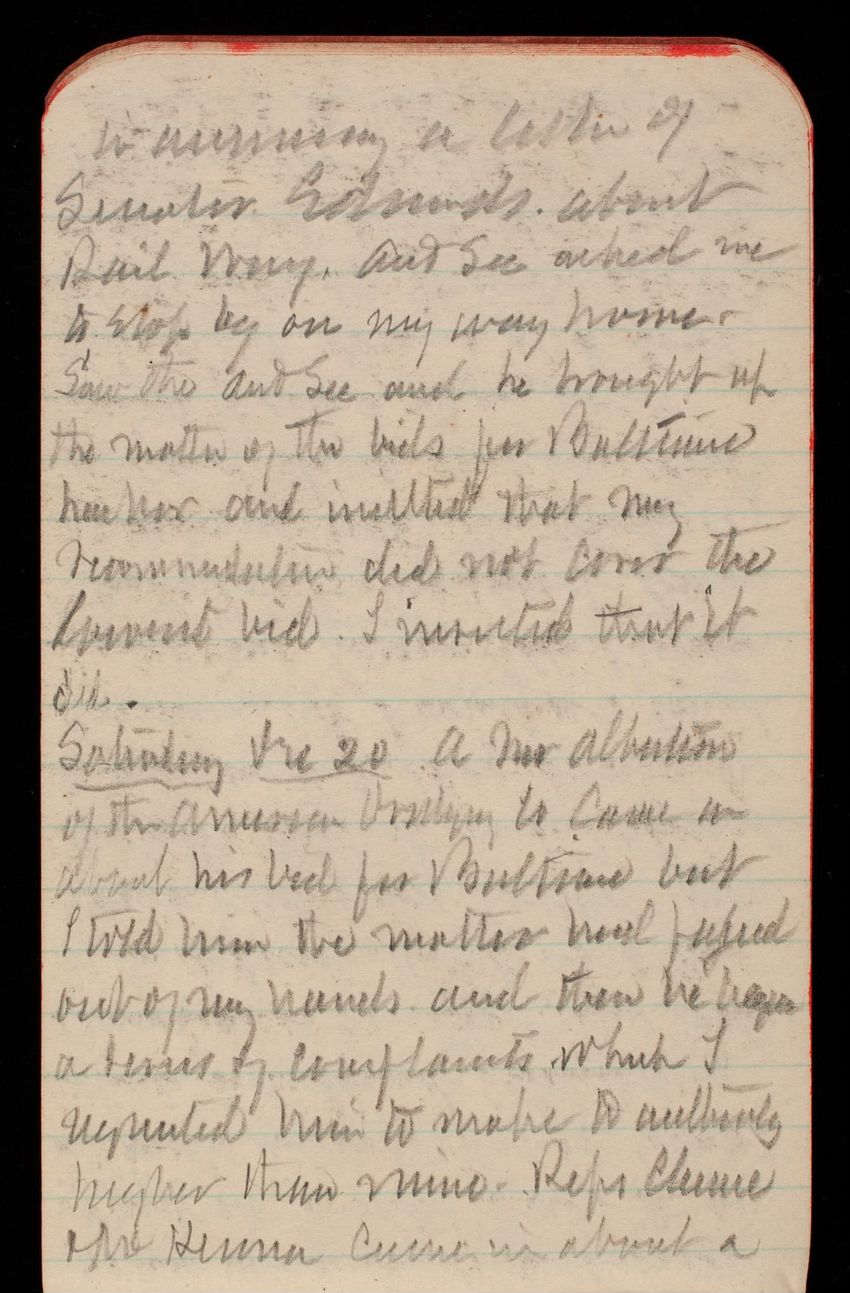 in answering a letter of
Senator Edmunds. about
Rail Way. Asst Sec asked me
to stop by on my way home.
Saw the Asst Sec and he brought up
the matter of the bids for Baltimore
harbor and insisted that my
recommendation did not cover the
lowest bid. I insisted that it
did.
Saturday Dec 20 A Mr Albertson
of the American Dredging Co Came in
about his bid for Baltimore but
I told him the matter had passed
out of my hands and then he began
a series of complaints which I
requested him to make to authority
higher than mine. Reps
Kenna Came in about a